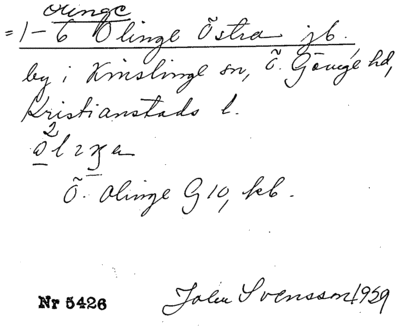 Olinge
= 1-6 Olinge Östra jb.
by i Knislinge sn, Ö. Göinge hd,
Kristianstads l.
Ö. Olinge G10, kb.
Nr 5426 John Svensson 1959